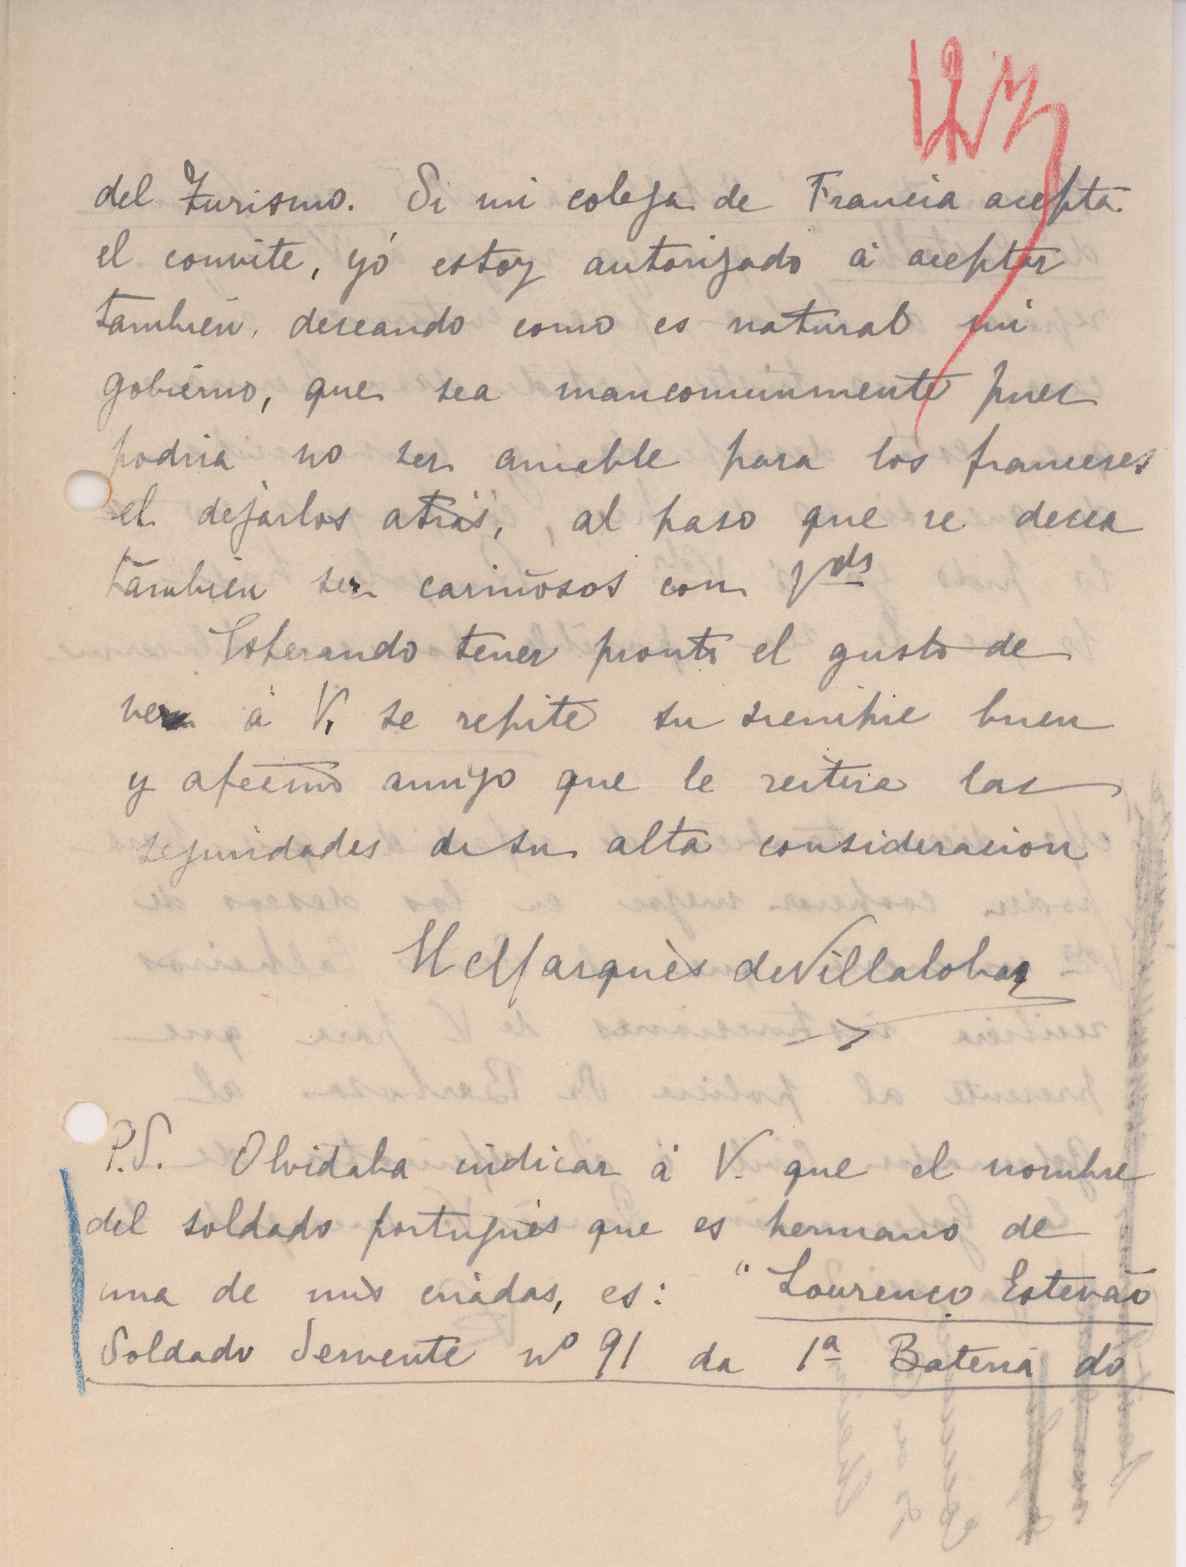 del Turismo. Si mi colega de Francia acepta
el convite, yó estoy autorizado á aceptar
también, deseando como es natural mi
gobierno, que sea mancomunmente pues
podria no ser amable para los franceses
el dejarlos atrás, al paso que se desea
también ser cariñosos con Vds
Esperando tener pronto el gusto de
ver á V, se repite su siempre buen
y afecmo amigo que le reitira las
seguridades de su alta consideracion
El Marqués de Villalobar
P.S. Olvidaba indicar á V. que el nombre
del soldado portugués que es hermano de
una de mis criadas, es: "Lourenço Estevão
Soldado Servente nº 91 da 1ª Bateria do